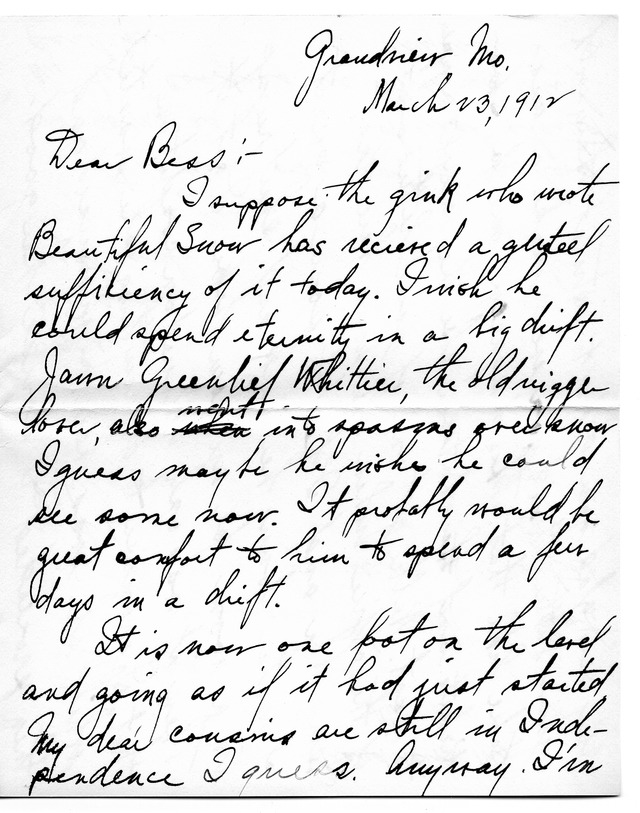 Grandview Mo.
March 23, 1912
Dear Bess:-
I suppose the gink who wrote
Beautiful Snow has recieved a genteel
sufficiency of it today. I wish he
could spend eternity in a big drift.
Jawn Greenlief Whittier, the old nigger
lover, also when went into spasms over snow
I guess maybe he wishes he could
see some now. It probably would be
great comfort to him to spend a few
days in a drift.
It is now one foot on the level
and going as if it had just started
My dear cousins are still in Inde-
pendence I guess. Anyway. I'm